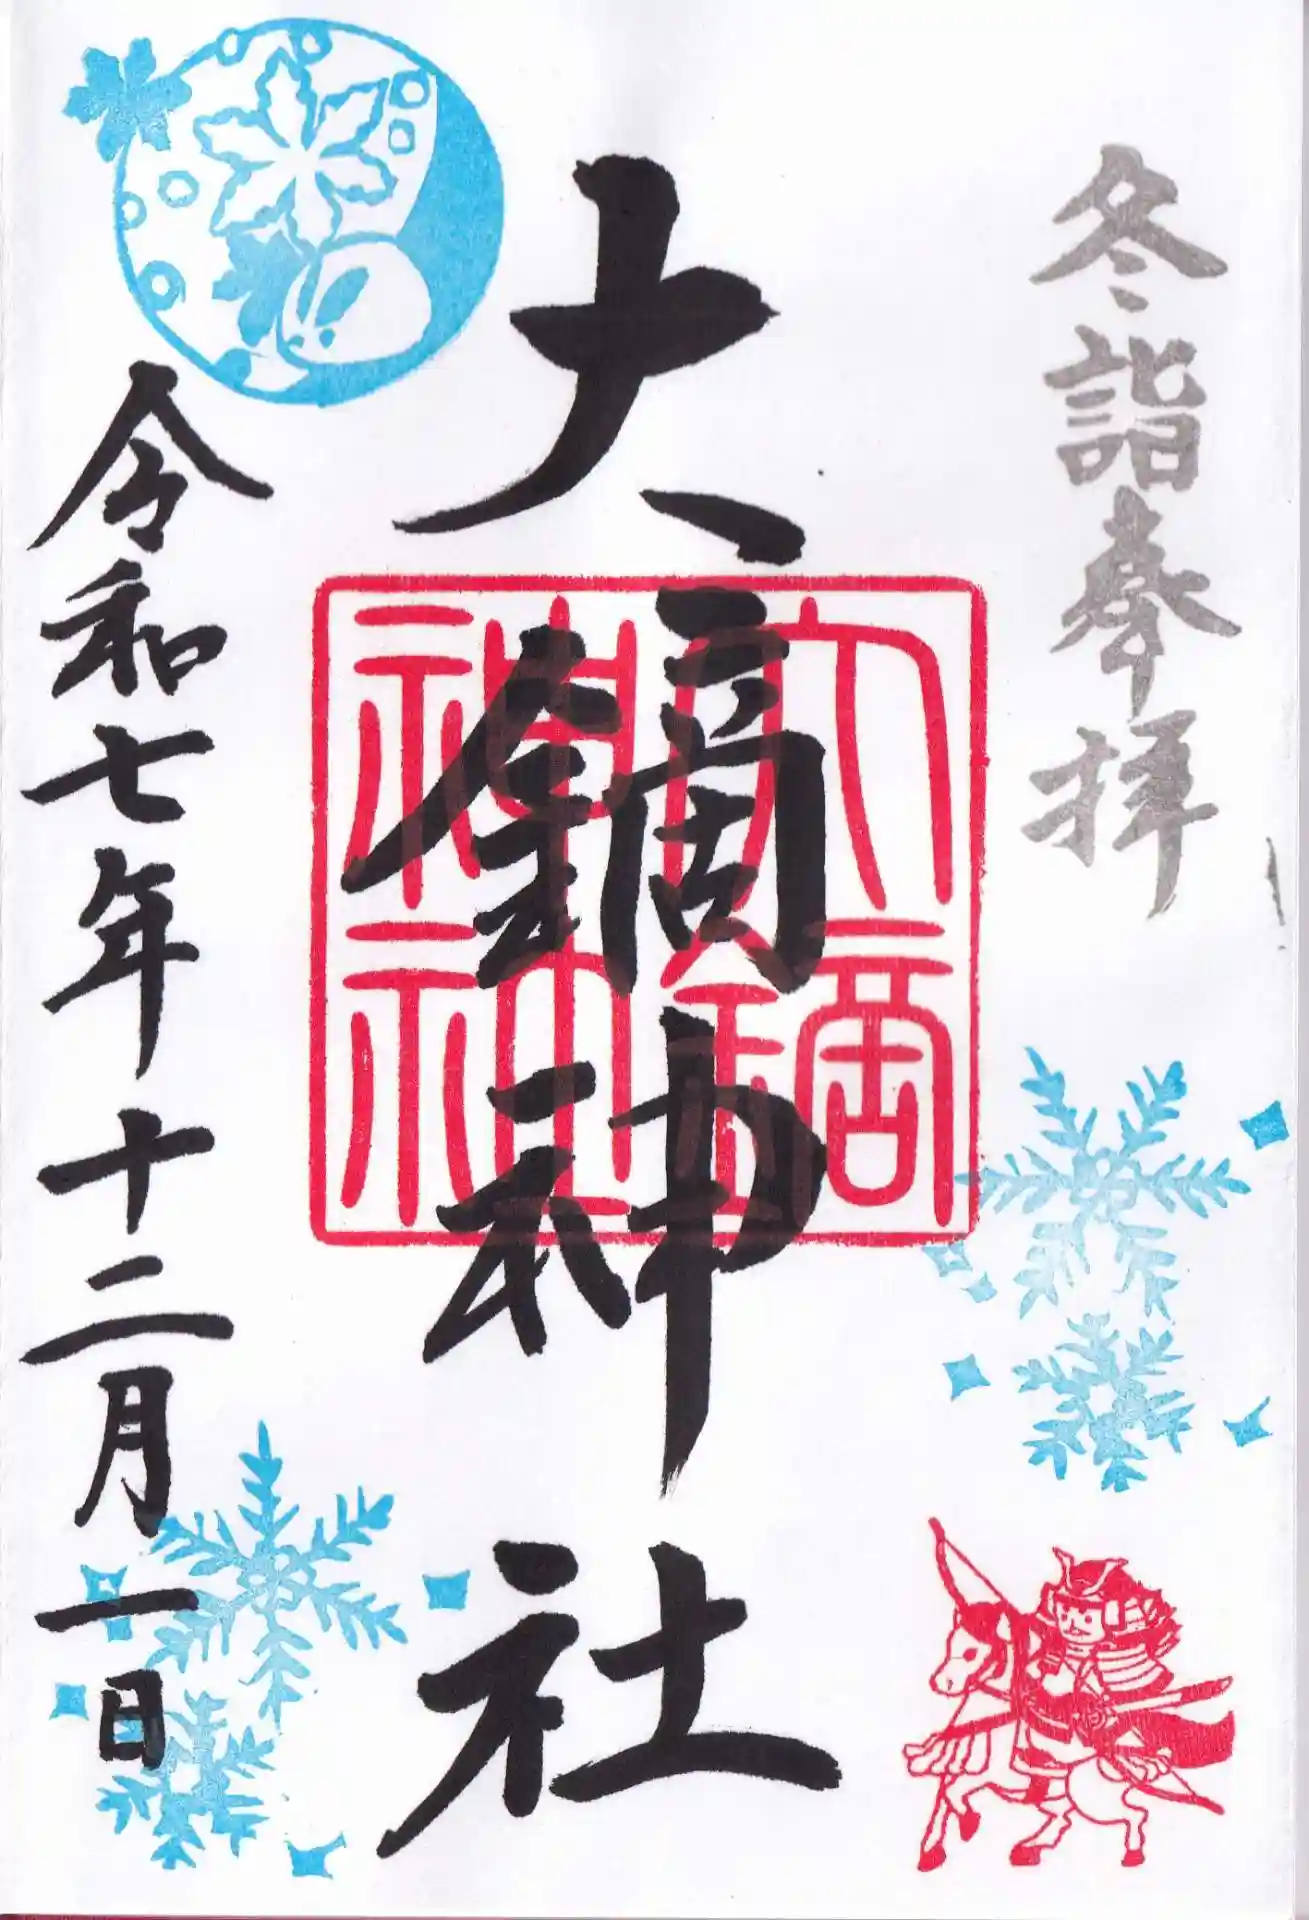 冬詣奉拝
大鏑神社
大鏑神社神社
令和七年十二月一日